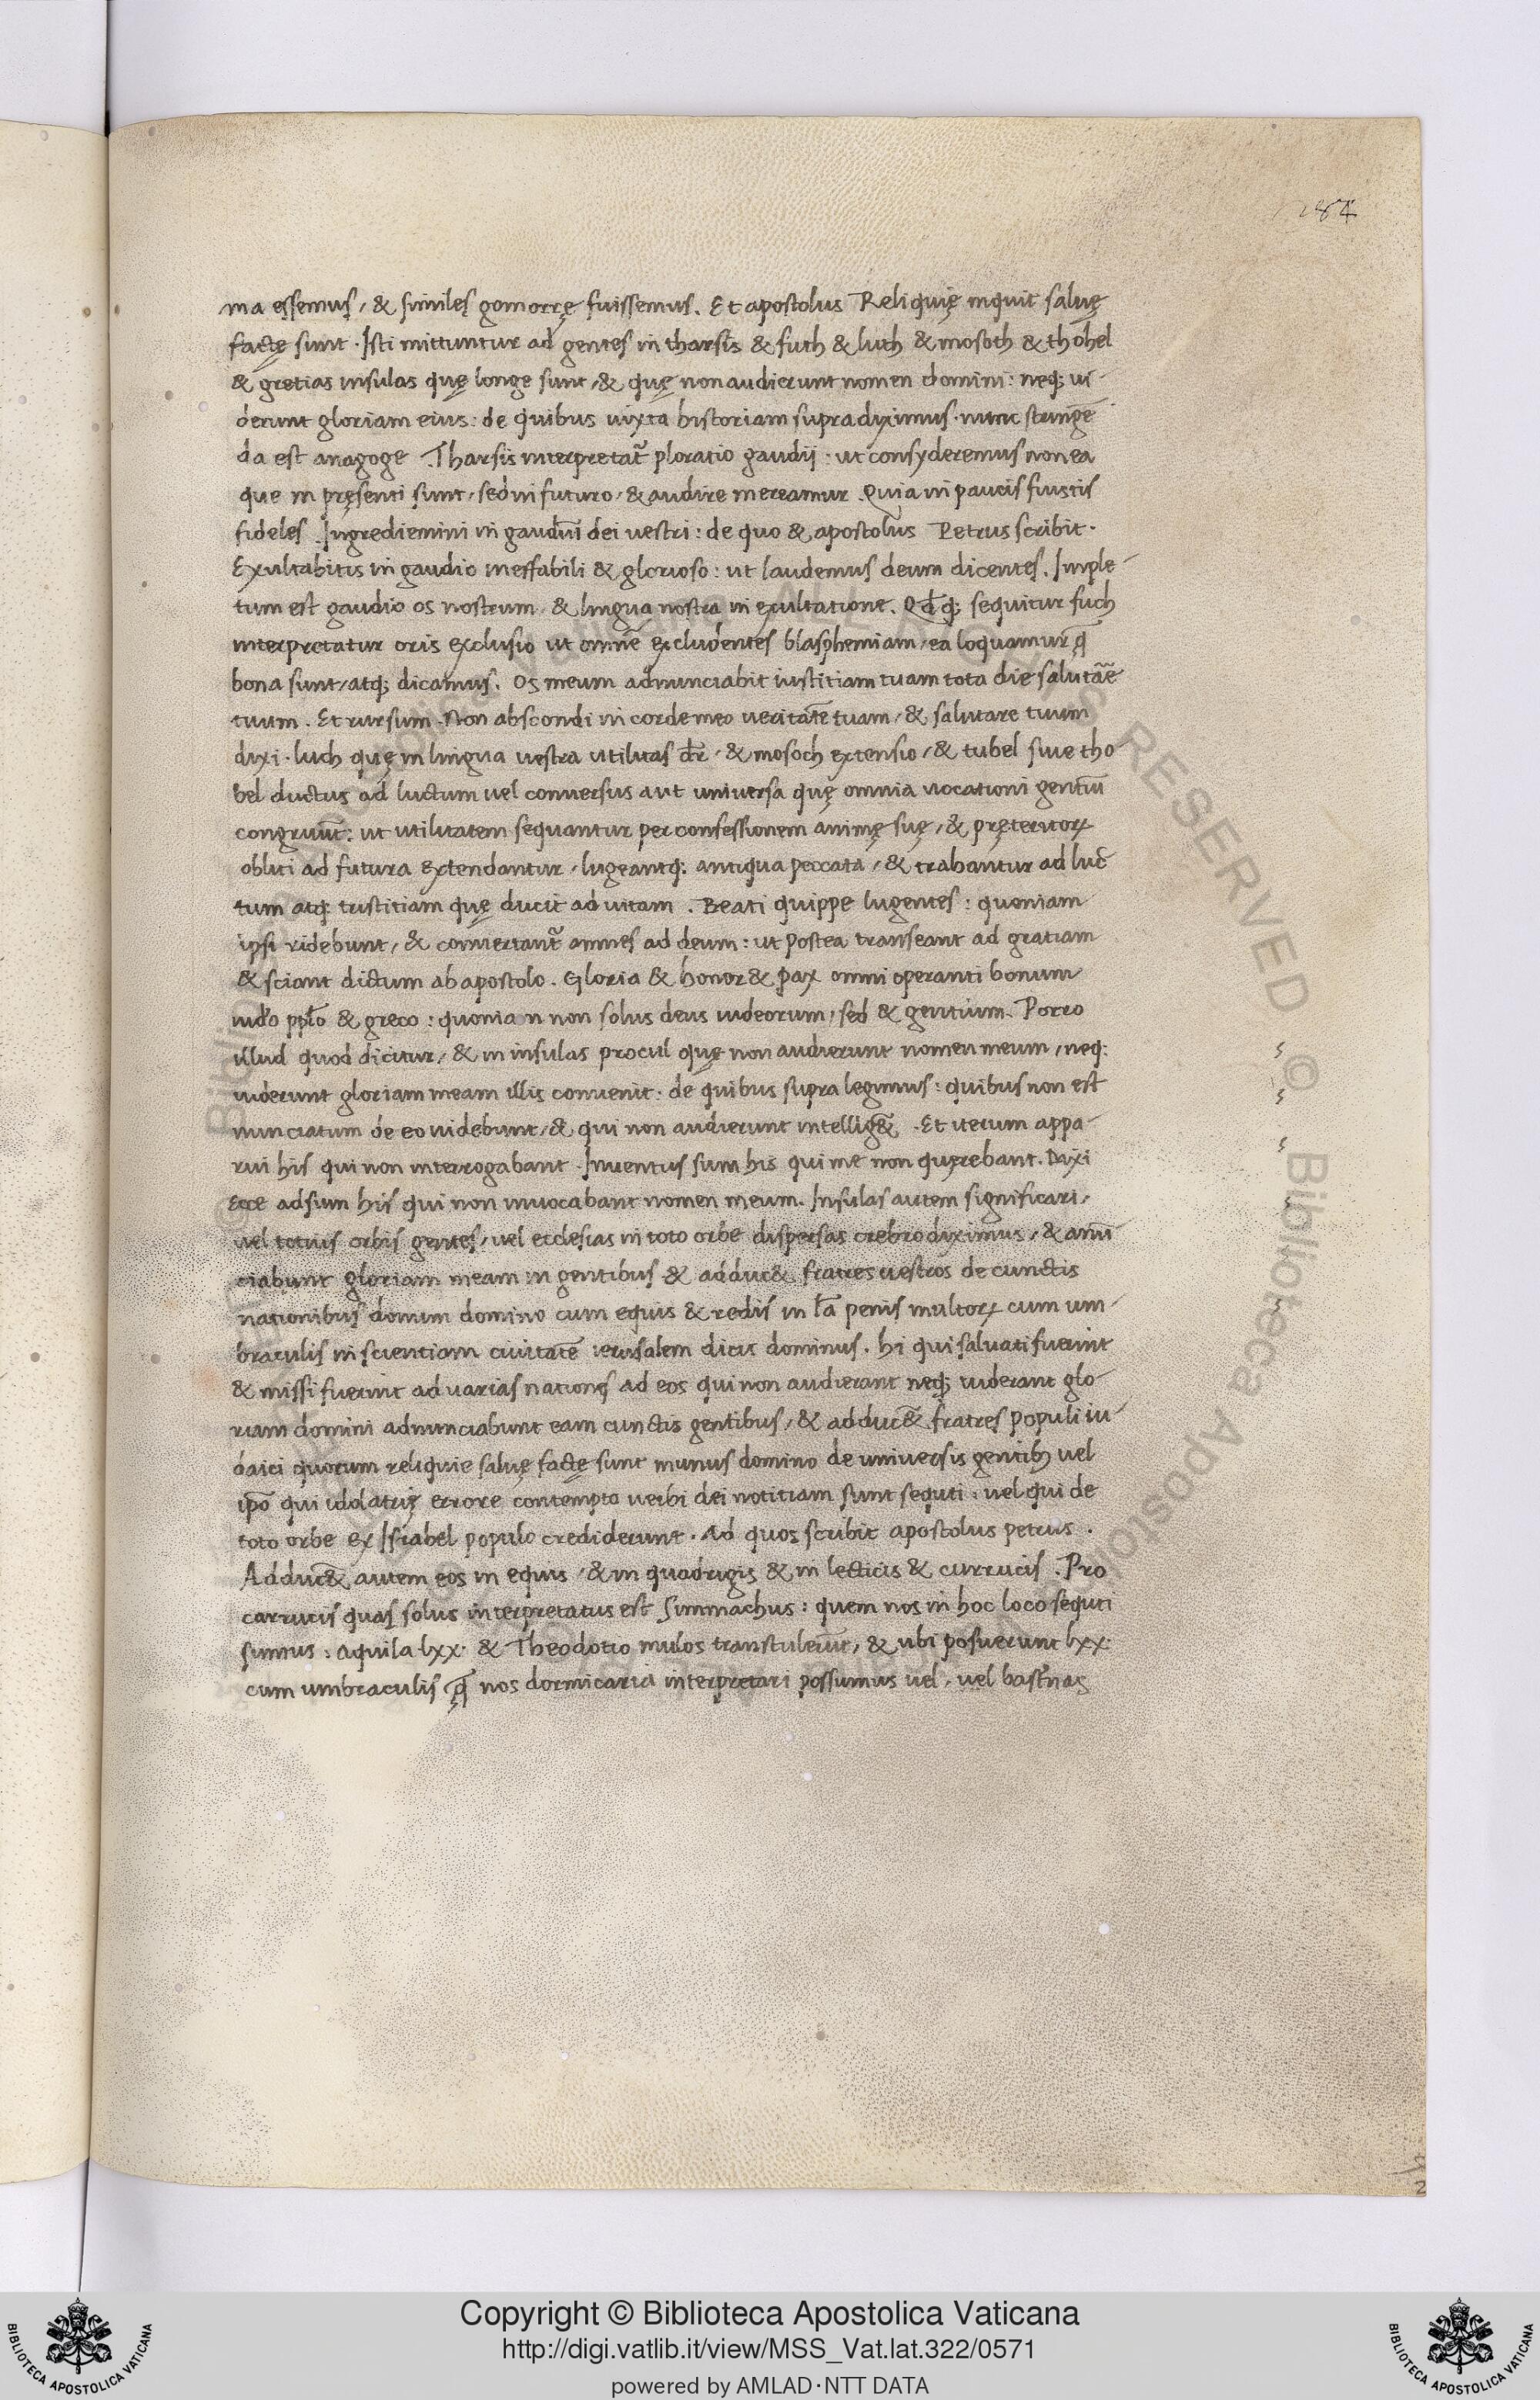 284
ma essemus, & similes gomorrę fuissemus. Et apostolus Reliquię inquit saluę
factę sunt. Isti mittuntur ad gentes in tharsis & futh & luth & mosoth & thohel
& gretias insulas quę longe sunt, & quę non audierunt nomen domini: neq; ui-
derunt gloriam eius: de quibus iuxta historiam supra diximus. nunc stringē
da est anagoge. Tharsis interpretat᷑ ploratio gaudij: ut consyderemus non ea
que in pręsenti sunt, sed in futuro, & audire mereamur. Quia in paucis fuistis
fideles. Ingrediemini in gaudiū dei vestri: de quo & apostolus Petrus scribit.
Exultabitis in gaudio ineffabili & glorioso: ut laudemus deum dicentes. Imple-
tum est gaudio os nostrum, & lingua nostra in exultatione. Qd̄q; sequitur fuch
interpretatur oris exclusio ut omnē excludentes blasphemiam, ea loquamur q̄
bona sunt, atq; dicamus. Os meum adnunciabit iustitiam tuam tota die salutāē
tuum. Et rursum. Non abscondi in corde meo veritatē tuam, & salutare tuum
dixi. luch quę in lingua vestra utilitas dr̄, & mosoch extensio, & tubel siue tho
bel ductus ad luctum vel conversus aut universa quę omnia vocationi gentiū
congruūt: ut utilitatem sequantur per confessionem animę suę, & pręteritoꝝ
obliti ad futura extendantur, lugeantq; antiqua peccata, & trahantur ad luc-
tum atq; tristitiam quę ducit ad vitam. Beati quippe lugentes: quoniam
ipsi ridebunt, & convertant᷑ amnes ad deum: ut postea transeant ad gratiam
& sciant dictum ab apostolo. Gloria & honor & pax omni operanti bonum
iud'o pp̄to & greco: quoniam non solus deus iudeorum, sed & gentium. Porro
illud quod dicitur, & in insulas procul quę non audierunt nomen meum, neq;
uiderunt gloriam meam illis convenit: de quibus supra legimus: quibus non est
nunciatum de eo uidebunt, & qui non audierunt intellig&̄. Et iterum appa-
rui his qui non interrogabant. Inventus sum his qui me non quęrebant. Dixi
Ecce adsum his qui non invocabant nomen meum. Insulas autem significari,
vel totius orbis gentes, vel ecclesias in toto orbe dispersas crebro diximus, & annū
ciabunt gloriam meam in gentibus & adduc&̄ fratres vestros de cunctis
nationibus donum domino cum equis & redis in l̄a penis multoꝝ cum um-
braculis in scientiam civitatē ierusalem dicit dominus. hi qui salvati fuerint
& missi fuerint ad varias nationes ad eos qui non audierant neq; uiderant glo-
riam domini adnunciabunt eam cunctis gentibus, & adduc&̄ fratres populi iu-
daici quorum reliquie saluę factę sunt munus domino de universis gentibꝫ vel
ip̄o qui idolatrię errore contempto verbi dei notitiam sunt sequti: vel qui de
toto orbe ex Israhel populo crediderunt. Ad quos scribit apostolus petrus.
Adduc&̄ autem eos in equis, & in quadrigis & in lecticis & currucis. Pro
carrucis quas solus interpretatus est simmachus: quem nos in hoc loco sequti
sumus: aquila lxx. & Theodotio mulos transtulerūt, & ubi posuerunt lxx.
cum umbraculis, q̄ nos dormitaria interpretari possumus vel, vel bast'nas
Copyright © Biblioteca Apostolica Vaticana
http://digi.vatlib.it/view/MSS_Vat.lat.322/0571
powered by AMLAD·NTT DATA